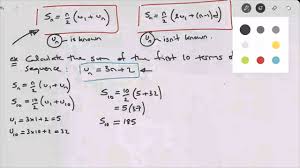 Sₙ = n/2 (u₁ + uₙ)
Sₙ = n/2 (2u₁ + (n-1)d)
uₙ is known
uₙ isn't known
ex Calculate the sum of the first 10 terms of
sequence : uₙ = 3n + 2
Sₙ = n/2 (u₁ + uₙ)
S₁₀ = 10/2 (u₁ + u₁₀)
u₁ = 3×1 + 2 = 5
u₁₀ = 3×10 + 2 = 32
S₁₀ = 10/2 (5 + 32)
= 5 (37)
S₁₀ = 185